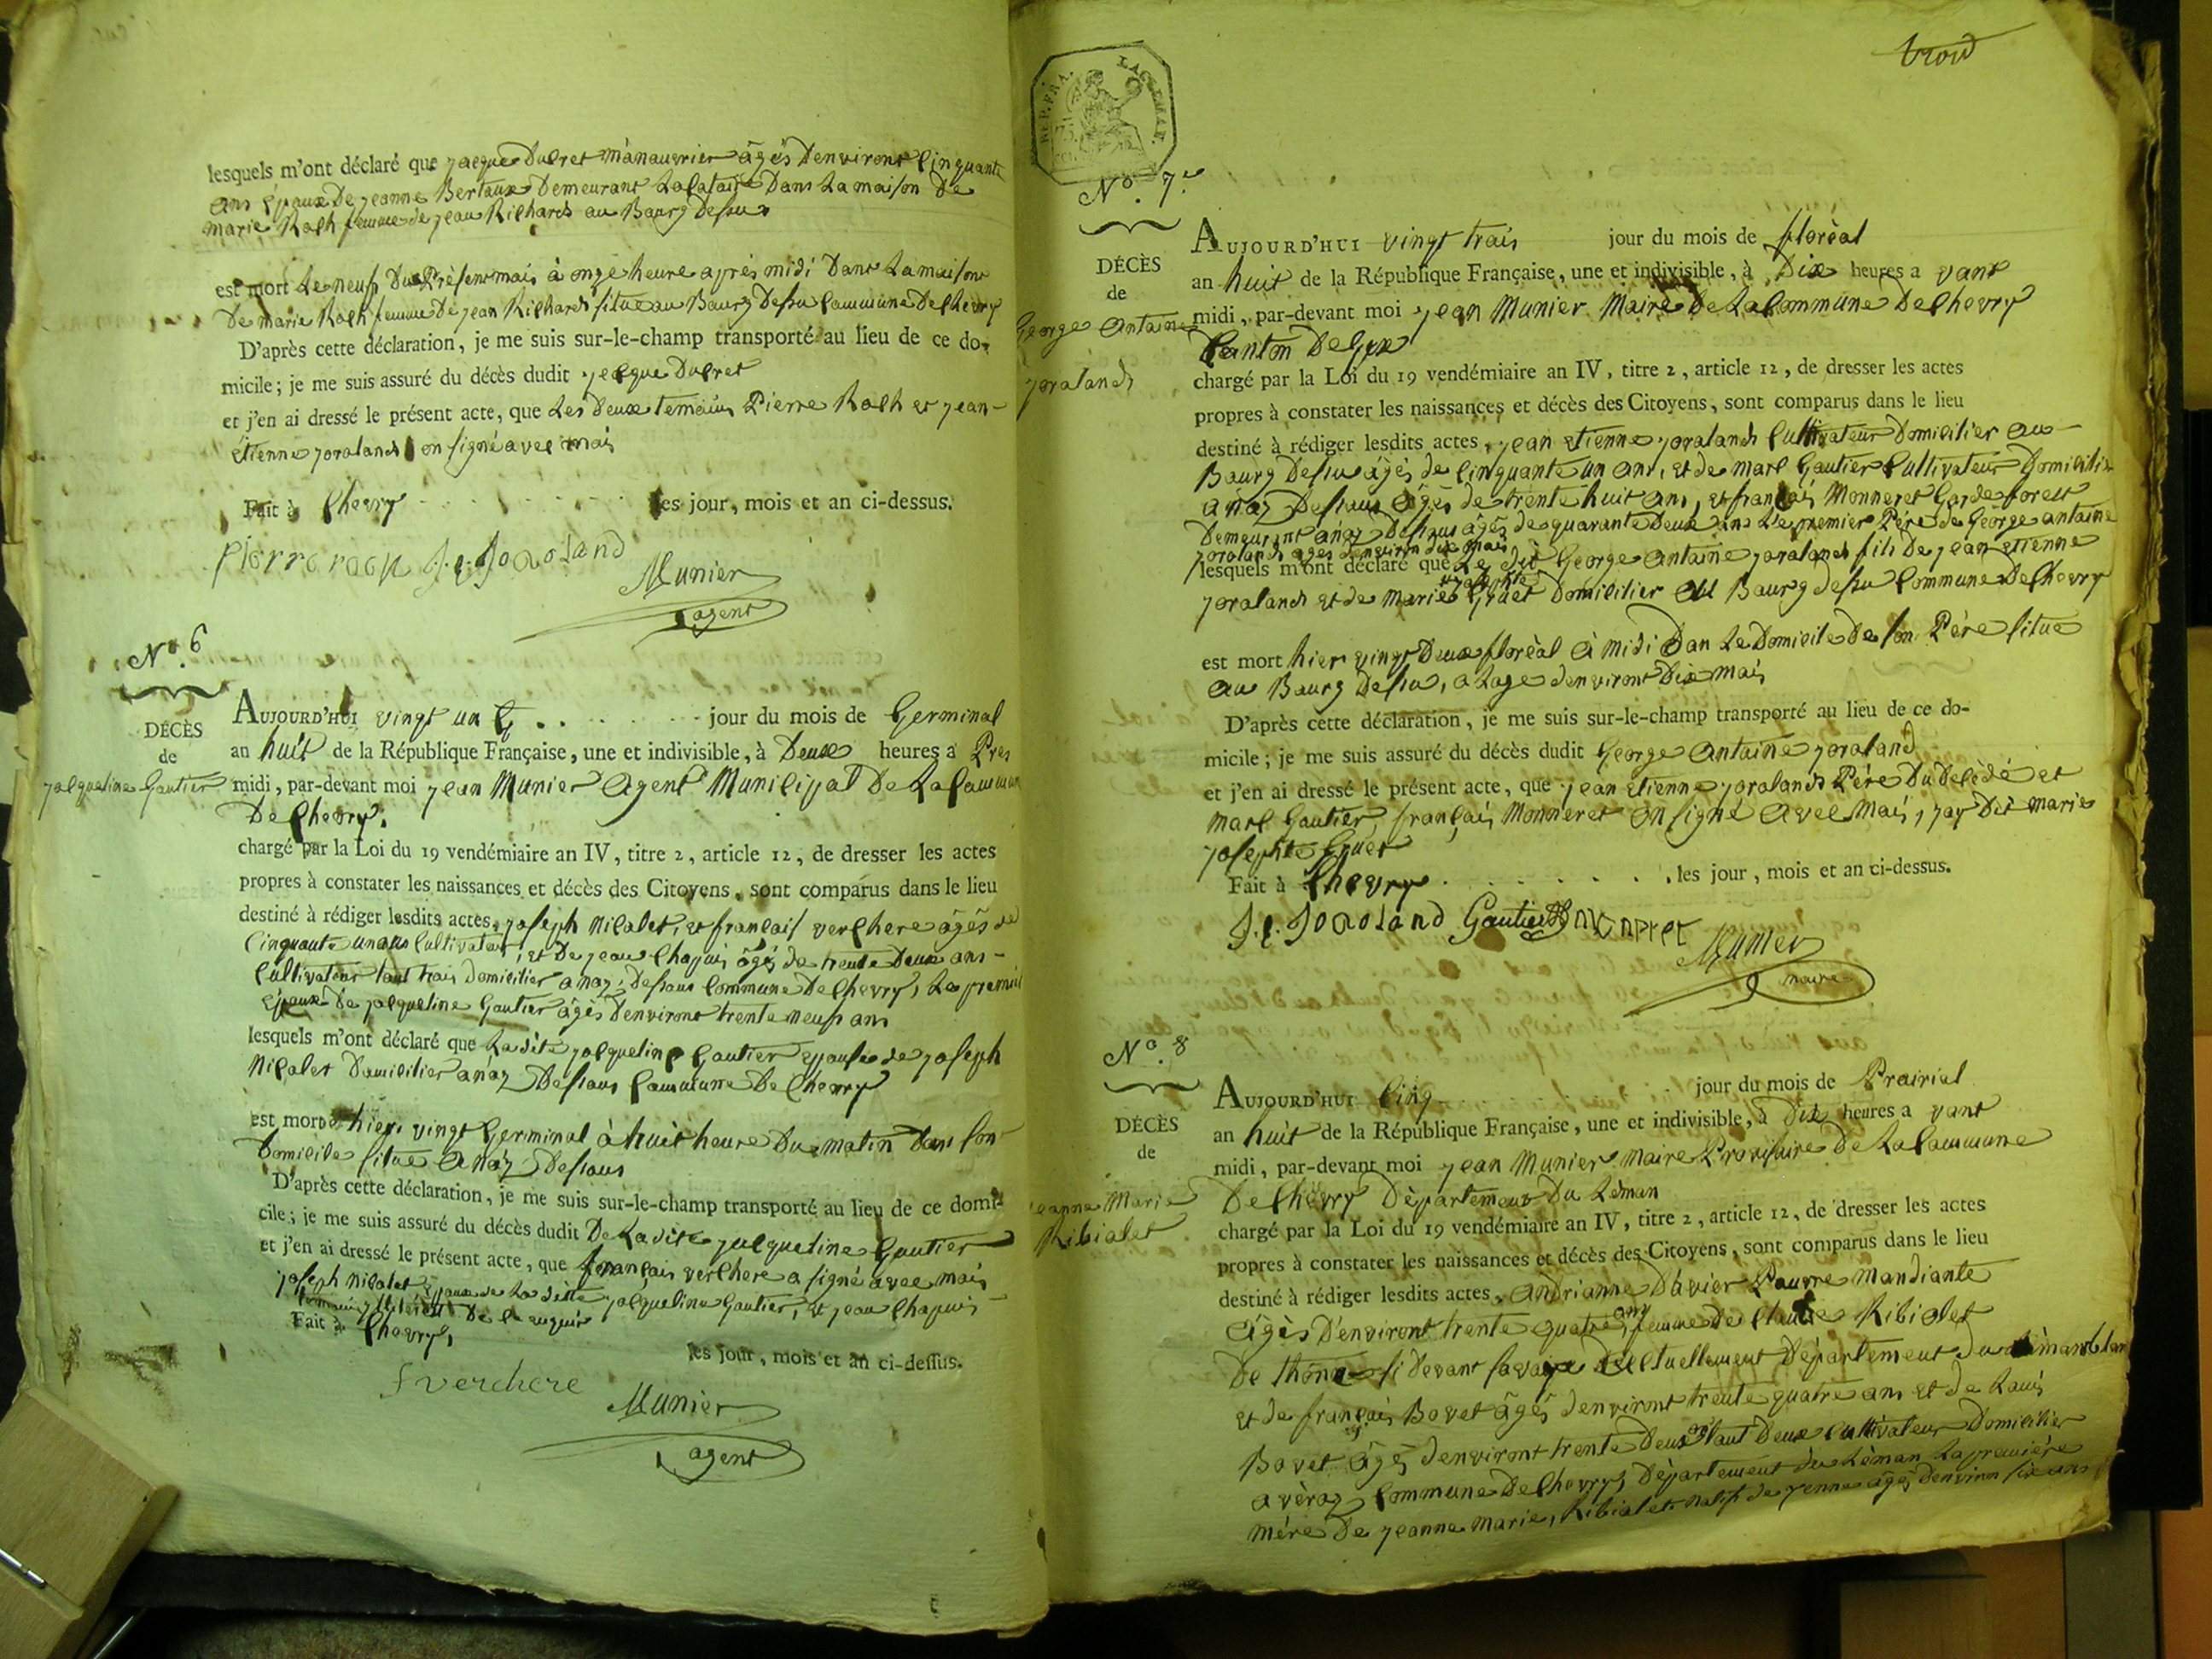 lesquels m'ont déclaré que jacque Ducret manauvrier âgés Denviront Cinquante
ans Epaux De jeanne Bertaux Demeurant Dans La maison De
marie Roch femme de jean Richard au Baurg Dessus
est mort Le neuf Du Présent mais à onze heure après midi Dans La maison
De marie Roch femme De jean Richard situe au Baurg Dessu Commune De Chevry
D'après cette déclaration, je me suis sur-le-champ transporté au lieu de ce do-
micile; je me suis assuré du décès dudit jacque Ducret
et j'en ai dressé le présent acte, que Les Deux temains Pierre Roch et jean-
Etienne joraland on signé avec mais
Fait à Chevry les jour, mois et an ci-dessus.
pierre roch J. e. Joraland
Munier
agent
No. 6
DÉCÈS
de
jacqueline Gautier
AUJOURD'HUI vingt un jour du mois de Germinal
an huit de la République Française, une et indivisible, à Deux heures a Pres
midi, par-devant moi jean Munier Agent Municipal De La Commune
De Chevry.
chargé par la Loi du 19 vendémiaire an IV, titre 2, article 12, de dresser les actes
propres à constater les naissances et décès des Citoyens, sont comparus dans le lieu
destiné à rédiger lesdits actes, joseph Nicalet, et français verchere âgés de
Cinquante un ans Cultivateur, et De jean Chapuis âgés de trente Deux ans -
Cultivateur taut trais domicilier a naz Dessaus Commune De Chevry, Le premier
Epaux De jacqueline Gautier âgés Denviront trente neuf ans
lesquels m'ont déclaré que La dite jacqueline Gautier epause de joseph
Nicalet Damicilier a naz Dessaus Commune De Chevry
est mort hier vingt Germinal à huit heure Du matin Dans son
Domicile situe A naz Dessaus
D'après cette déclaration, je me suis sur-le-champ transporté au lieu de ce domi-
cile; je me suis assuré du décès dudit De La dite jacqueline Gautier
et j'en ai dressé le présent acte, que français verchere a signé avec mais
joseph Nicalet Epaux de La ditte jacqueline Gautier, et jean Chapuis -
De ce enquis
Fait à Chevry,
les jour, mois et an ci-dessus.
f verchere
Munier
agent
trois
REP. FRA.
No. 7.e
DÉCÈS
de
George Antaine
joraland
AUJOURD'HUI vingt trais jour du mois de floréal
an huit de la République Française, une et indivisible, à Dix heures a vant
midi, par-devant moi jean Munier Maire De La Commune De Chevry
Canton De Gex
chargé par la Loi du 19 vendémiaire an IV, titre 2, article 12, de dresser les actes
propres à constater les naissances et décès des Citoyens, sont comparus dans le lieu
destiné à rédiger lesdits actes, jean etienne joraland Cultivateur Domicilier au -
Baurg Dessu âgés de Cinquante un ans, et de marc Gautier Cultivateur Domicilier
a naz Dessaus âgés de trente huit ans, et français Monneret Garde forest
Demeurant a naz Dessaus âgés de quarante Deux ans Le premier Père de George antaine
joraland ages denviron dix mais
lesquels m'ont déclaré que Le dit George antaine joraland fils De jean etienne
joraland et de marie josephte Gruet Domicilier au Baurg dessu Commune De Chevry
est mort hier vingt Deux floréal à midi Dan Le Domicile De son Père situe
au Baurg Dessu, a Lage denviront Dix mais
D'après cette déclaration, je me suis sur-le-champ transporté au lieu de ce do-
micile; je me suis assuré du décès dudit George Antaine joraland
et j'en ai dressé le présent acte, que jean etienne joraland Père Du Décédé et
marc Gautier, français Monneret on signé avec mais, jay Dit marie
josephte Gruet
Fait à Chevry les jour, mois et an ci-dessus.
J. e. Joraland Gautier
Munier
maire
No. 8
DÉCÈS
de
jeanne Marie
Ribialet
AUJOURD'HUI Cinq jour du mois de Prairial
an huit de la République Française, une et indivisible, à Dix heures a vant
midi, par-devant moi jean Munier Maire Provisaire De La Commune
De Chevry Département Du Léman
chargé par la Loi du 19 vendémiaire an IV, titre 2, article 12, de dresser les actes
propres à constater les naissances et décès des Citoyens, sont comparus dans le lieu
destiné à rédiger lesdits actes, andrianne Davier Pauvre Mandiante
âgés D'environt trente quatre ans femme De Claude Ribialet
De thône si devant savoye actuellement Département du
et de français Bovet âgés denviront trente quatre ans et de Lauis
Bovet âgés denviront trente Deux ans taut Deux Cultivateur Domicilier
a véraz Commune De Chevry, Département du Léman La première
mère De jeanne Marie, Ribialet natif de yenne âgés denviron six ans